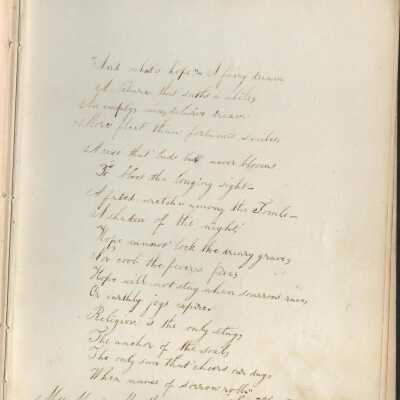 And what's hope? A fairy dream
A that sooths a while,
An empty, vain, delusive dream
More fleet than fortune's smiles,
A rose that buds but never blooms
To bless the longing sight—
A fated wretch among the Tombs—
A shadow of the night,
Hope cannot lock the dreary grave,
Nor cool the fever's fires,
Hope will not stay when sorrows rave,
Or earthly joys expires
Religion is the only stay,
The anchor of the soul,
The only sun that cheers our day,
When waves of sorrow roll,